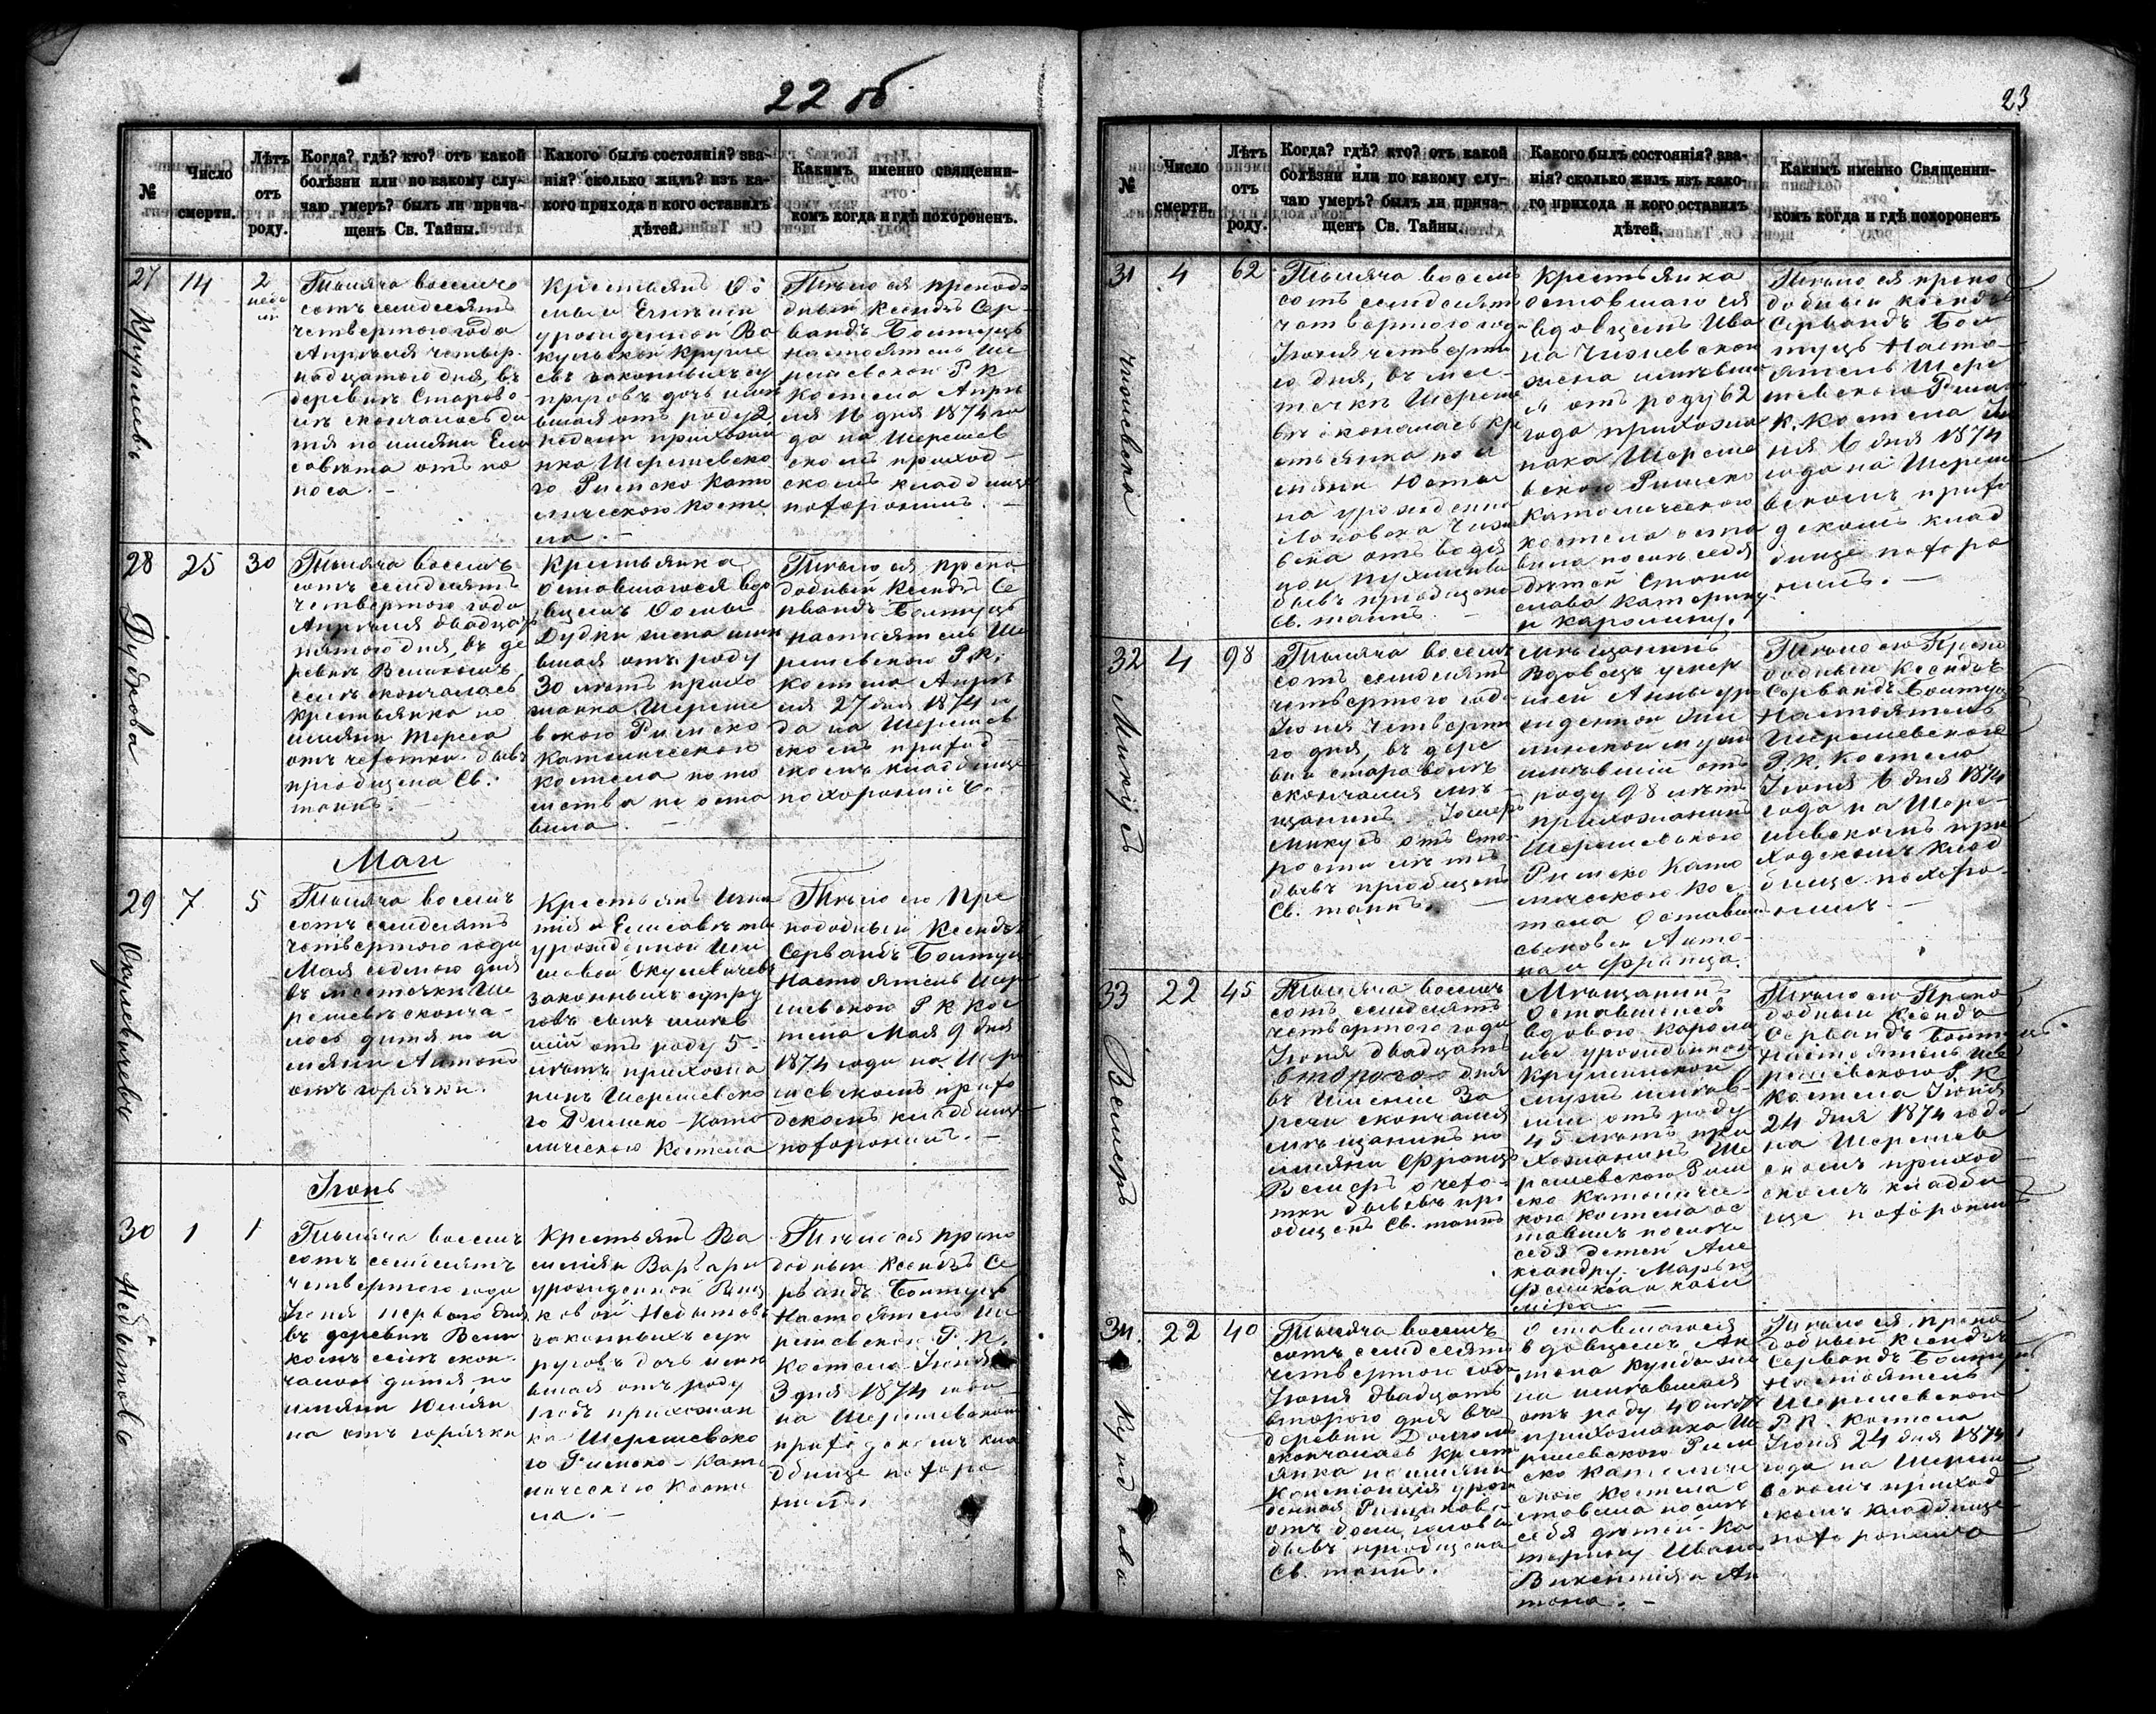 22 об
№
Число
смерти.
Лѣтъ
отъ
роду.
Когда? гдѣ? кто? отъ какой
болѣзни или по какому слу-
чаю умеръ? былъ ли прича-
щенъ Св. Тайны.
Какого былъ состоянія? зва-
нія? сколько жилъ? изъ ка-
кого прихода и кого оставилъ
дѣтей.
Какимъ именно священни-
комъ когда и гдѣ похороненъ.
27
14
2
неде
ли
Тысяча восемь
сотъ семдесятъ
четвертого года
Апрѣля четыр-
надцатого дня, въ
деревнѣ Старово-
лѣ скончалась ди
тя по имяни Ели
савѣта отъ по
носа. -
Крестьянъ
урожденной
законныхъ су
пруговъ дочь имѣ
вшая отъ роду 2
недели прихожан
нка Шерешевско
го Римско Като
лическаго Косте
ла. -
Тѣло ея препод
бный Ксендзъ Сер
вандъ Болтуць
настоятель Ше
решевской Р К
Костела Апрѣ
ля 16 дня 1874 го
да на Шерешев
скомъ приход
скомъ кладбище
похоронилъ. -
28
Дудкова
25
30
Тысяча восемь
сотъ семдесятъ
четвертого года
Апрѣля двадцать
пятого дня, въ де
ревнѣ Великомъ
селѣ скончалась
крестьянка по
имяни Тереса
отъ чехотки бывъ
пріобщена Св.
таинъ. -
Крестьянка
оставшагося вдо
вцемъ Осипа
Дудки жена имѣ
вшая отъ роду
30 лѣтъ прихо
жанка Шереше
вского Римско
Католическаго
Костела пото
мства не оста
вила. -
Тѣло ея препо
добный Ксендзъ Се
рвандъ Болтуць
настоятель Ше
решевского Р.К.
Костела Апрѣ
ля 27 дня 1874 го
да на Шерешев
скомъ приход
скомъ кладбище
похоронилъ. -
Май
29
Окулевичевъ
7
5
Тысяча восемь
сотъ семдесятъ
четвертого года
Мая седмого дня
въ местечкѣ Ше
решевѣ сконча-
лось дитя по и
мяни Антонъ
отъ горячки.
Крестьянъ Игна
тія и Елисаветы
урожденной
Окулевичевъ
законныхъ супру
говъ сынъ имѣв
шій отъ роду 5
лѣтъ прихожа
нинъ Шерешевско
го Римско-Като
лическаго Костела
Тѣло его Пре
подобный Ксендзъ
Сервандъ Болтуць
Настоятель Шере
шевского Р К Кос
тела Мая 9 дня
1874 года на Шере
шевскомъ прихо
дскомъ кладбище
похоронилъ. -
Іюнь
30
1
1
Тысяча восемь
сотъ семдесятъ
четвертого года
Іюня первого дня
въ деревнѣ Вели
комъ селѣ скон-
чалось дитя по
имяни Юлiян
на отъ горячки
Крестьянъ Ва
силія и Варвары
урожденной
законныхъ суп
руговъ дочь имѣ
вшая отъ роду
1 годъ прихожан
ка Шерешевско
го Римско-Като
лическаго Косте
ла. -
Тѣло ея препо
добный Ксендзъ Се
рвандъ Болтуць
Настоятель Ше
решевской Р. К.
Костела Іюня
3 дня 1874 года
на Шерешевском
приходскомъ кла
дбище похоро
нилъ.
23
№
Число
смерти.
Лѣтъ
отъ
роду.
Когда? гдѣ? кто? отъ какой
болѣзни или по какому слу-
чаю умеръ? былъ ли прича-
щенъ Св. Тайны.
Какого былъ состоянія? зва-
нія? сколько жилъ изъ како-
го прихода и кого оставилъ
дѣтей.
Какимъ именно Священни-
комъ когда и гдѣ похороненъ
31
4
62
Тысяча восемь
сотъ семдесятъ
четвертого года
Іюня четверта
го дня, въ мес-
течкѣ Шереше
вѣ скончалась кре
стьянка по и
мяни Юсты
на урожденна
отъ водя
ной
бывъ пріобщена
Св. таинъ. -
Крестьянка
оставшаго ся
вдовцемъ Ива
на
жена имѣвша
я отъ роду 62
года прихожа
нка Шереше
вского Римско
Католического
костела оста
вила послѣ себя
дѣтей Стани
слава Катерину
и Каролину.
Тѣло ея препо
добный Ксендзъ
Сервандъ Бол
туць Насто-
ятель Шере
шевского Римск
К. Костела Ію
ня 6 дня 1874
года на Шереше
вскомъ прихо
дскомъ клад
бище похоро
нилъ. -
32
Микусъ
4
98
Тысяча восемь
сотъ семдесятъ
четвертого года
Іюня четверта
го дня, въ дере
внѣ Староволѣ
скончался мѣ-
щанинъ
Микусъ отъ ста-
рости лѣтъ
бывъ пріобщенъ
Св. таинъ. -
Мѣщанинъ
Вдовецъ умер
шей Анны уро
жденной
мужъ
имѣвшій отъ
роду 98 лѣтъ
прихожанинъ
Шерешевского
Римско Като
лическаго Кос
тела оставилъ
сыновей Анто-
на и Франца.
Тѣло его Препо
добный Ксендзъ
Сервандъ Болтуць
Настоятель
Шерешевского
Р. К. Костела
Іюня 6 дня 1874
года на Шере-
шевскомъ при
ходскомъ клад
бище похоро-
нилъ -
33
22
45
Тысяча восемь
сотъ семдесятъ
четвертого года
Іюня двадцать
второго дня
въ имѣніи За
речи скончался
мѣщанинъ по
имяни Францъ
отъ чехо-
тки бывъ прі
общенъ Св. таинъ
Мѣщанинъ
Оставшейся
вдовою Кароли
ны урожденной
мужъ имѣв-
шій отъ роду
45 лѣтъ при
хожанинъ Ше
решевского Рим
ско Католичес-
кого Костела ос
тавилъ послѣ
себя детей Але
ксандру Марью
Феликса и Кази
мира -
Тѣло его Препо
добный Ксендзъ
Сервандъ Болтуць
Настоятель Ше
решевского Р. К
Костела Іюня
24 дня 1874 года
на Шерешев
скомъ приход-
скомъ кладби
ще похоронилъ
34.
22
40
Тысяча восемь
сотъ семдесятъ
четвертого года
Іюня двадцать
второго дня въ
деревни
скончалась крест
янка по имяни
Констанція урож
денная
отъ боли головы
бывъ пріобщена
Св. таинъ.
Оставшагося
вдовцемъ Ан
тона Кунды же
на имѣвшая
отъ роду 40 лѣтъ
прихожанка Ше
решевского Рим
ско Католиче
ского Костела о
ставила послѣ
себя дѣтей Ка
терину Ивана
Викентія и Ан
тона. -
Тѣло ея препо
добный Ксендзъ
Сервандъ Болтуць
Настоятель
Шерешевской
Р. К. Костела
Іюня 24 дня 1874
года на Шереше
вскомъ приход
скомъ кладбище
похоронилъ